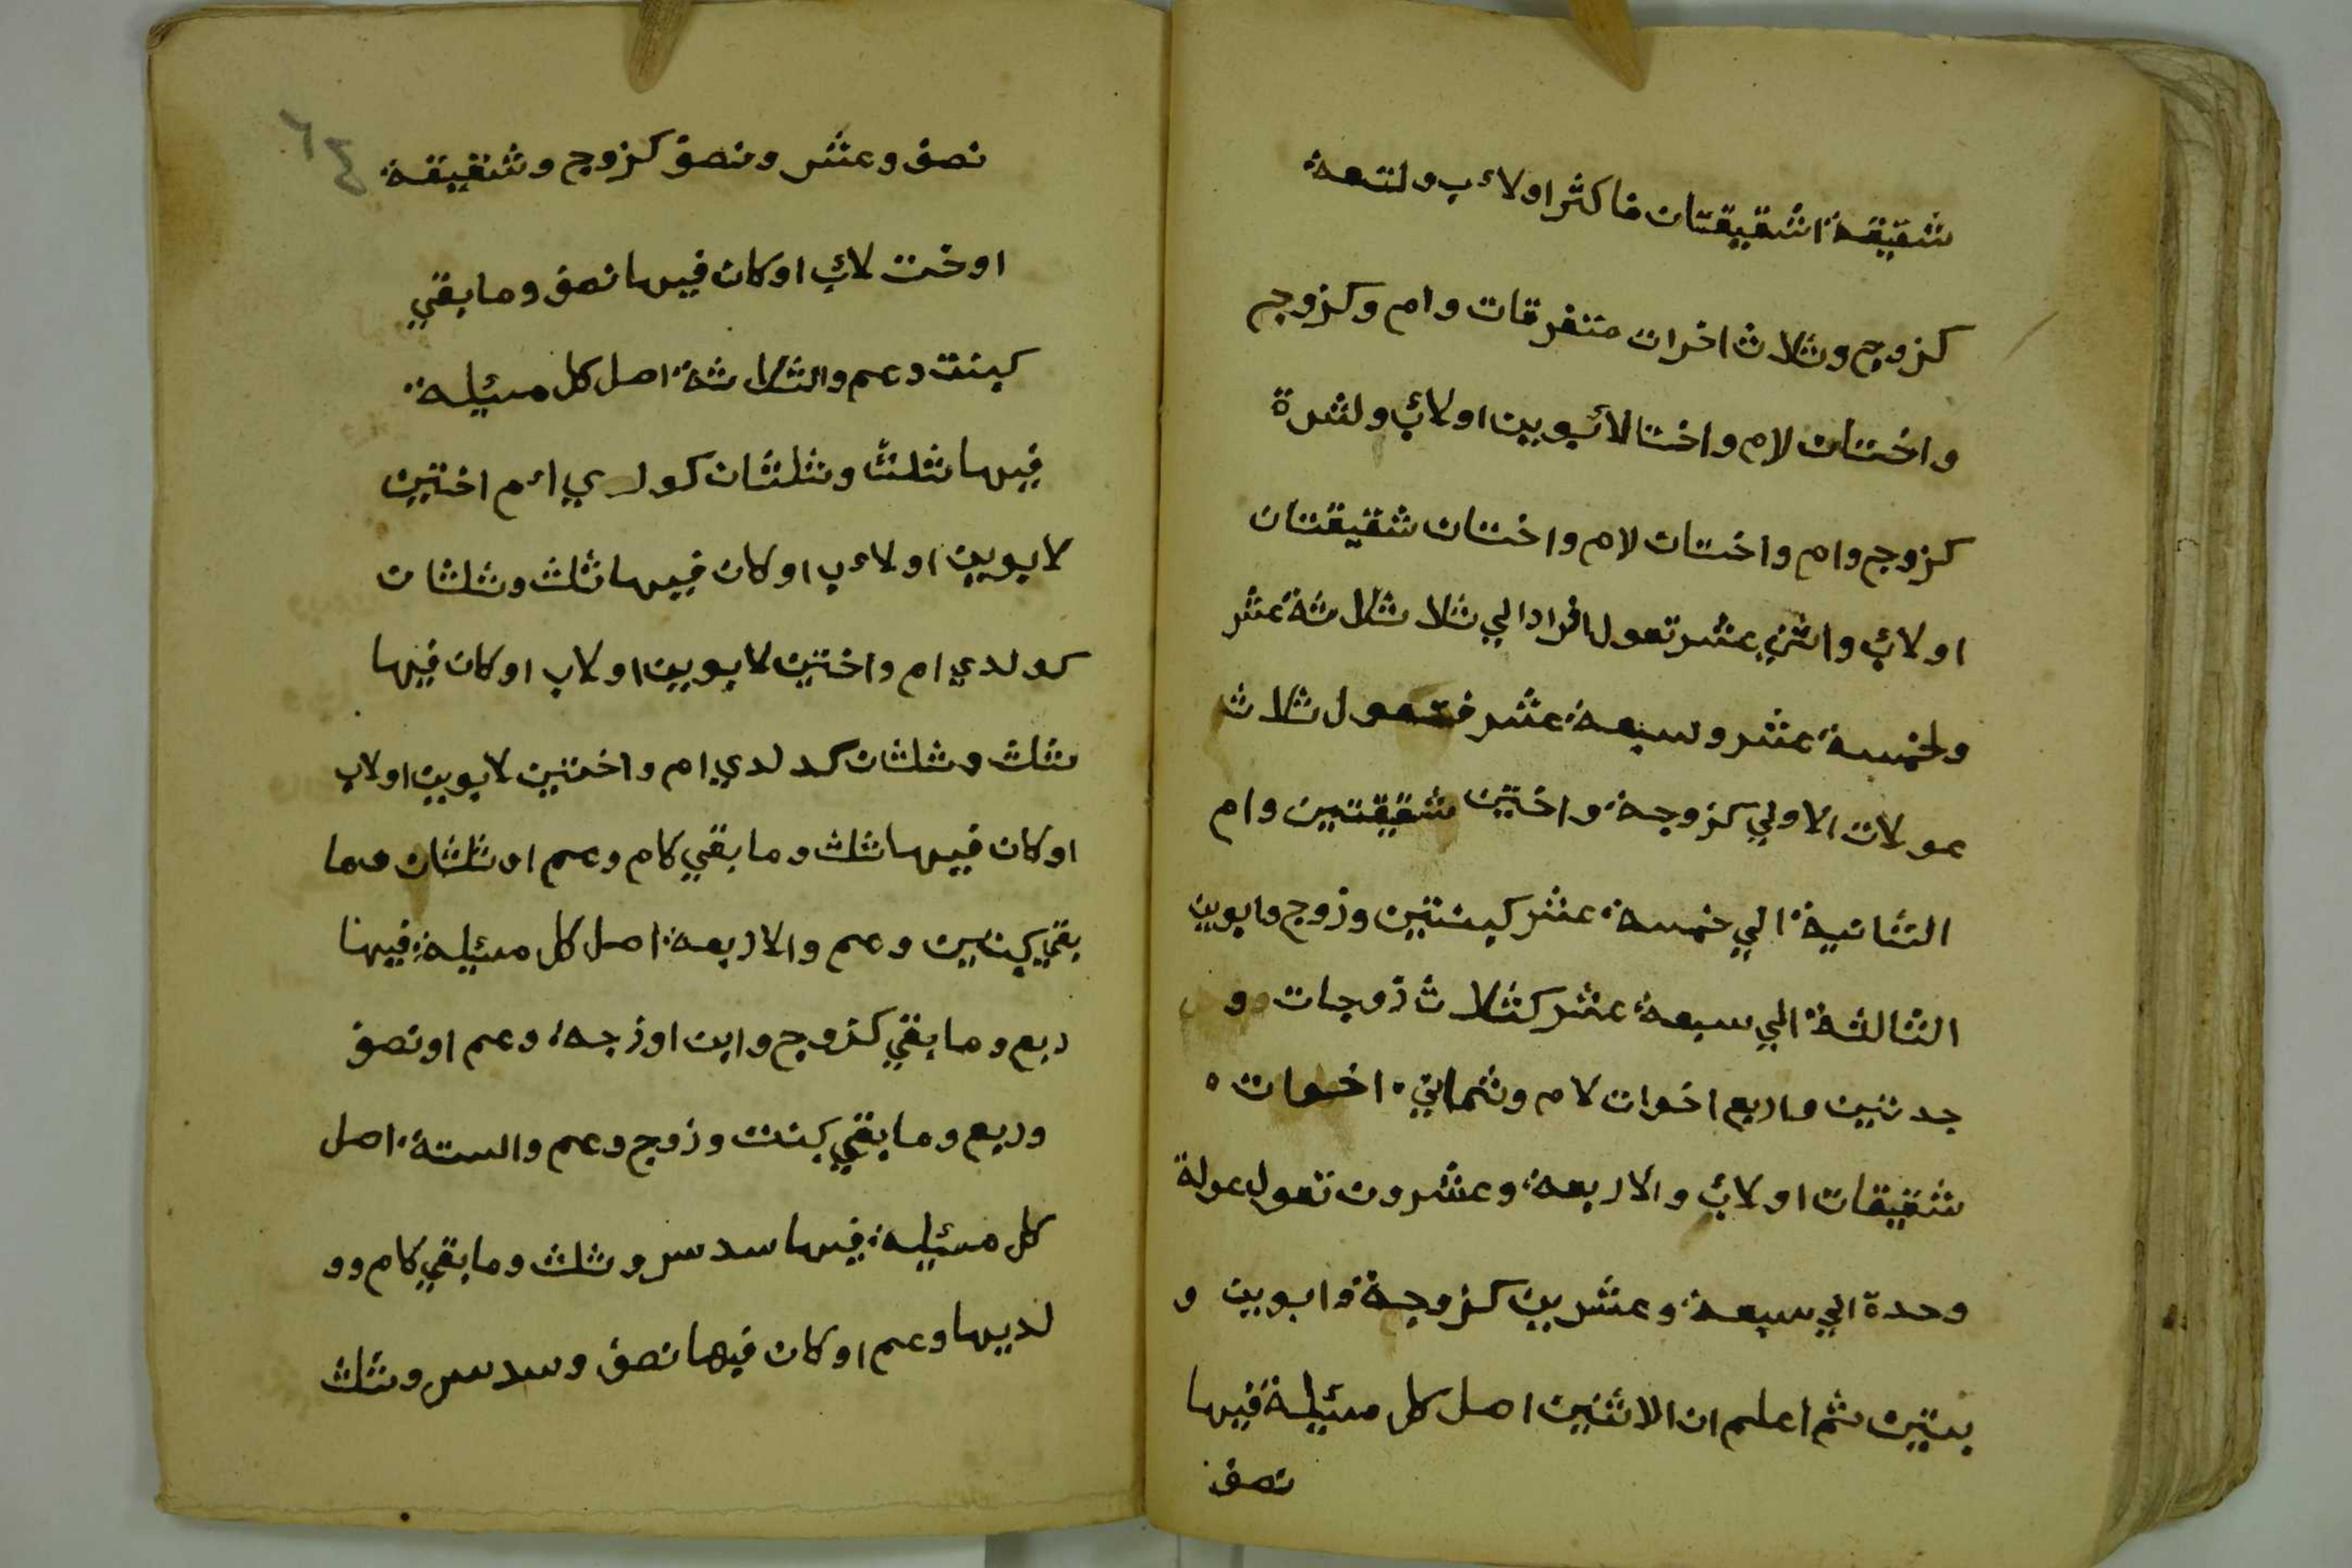 شقيقة اشقيقتان فاكثر اولاءب ولتعة
كزوج وثلاث اخوات متفرقات وام وكزوج
واختان لام واختا لأبوين اولاب ولشرة
كزوج وام واختان لام واختان شقيقتان
اولاب واثني عشر تعول افرادا الي ثلا ثلاثة عشر
ولخمسة عشر وسبعة عشر فتعول ثلاث
عولات الاولي كزوجة واختين شقيقتين وام
الثانية الي خمسة عشر كبنتين وزوج وابوين
الثالثة الي سبعة عشر كثلاث زوجات و
جدتين واربع اخوات لام وثماني اخوات
شقيقات اولاب والاربعة وعشرون تعول عولة
وحدة الي سبعة وعشرين كزوجة وابوين و
بنتين ثم اعلم ان الاثنين اصل كل مسئلة فيها
نصف
٦٤
نصف وعشر ونصف كزوج وشقيقة
اوخت لاب اوكان فيها نصف وما بقي
كبنت وعم والثلاثة اصل كل مسئلة
فيها ثلث وثلثان كولدي اءم اختين
لابوين اولاءب اوكان فيها ثلث وثلثان
كولدي ام واختين لابوين اولاب اوكان فيها
ثلث وثلثان كدلدي ام واختين لابوين اولاب
اوكان فيها ثلث وما بقي كام وعم او ثلثان وما
بقي كبنتين وعم والاربعة اصل كل مسئلة فيها
ربع وما بقي كزوج وابن اوزجة وعم اونصف
وربع وما بقي كبنت وزوج وعم والستة اصل
كل مسئلة فيها سدس وثلث وما بقي كام وو
لديها وعم اوكان فيها نصف وسدس وثلث